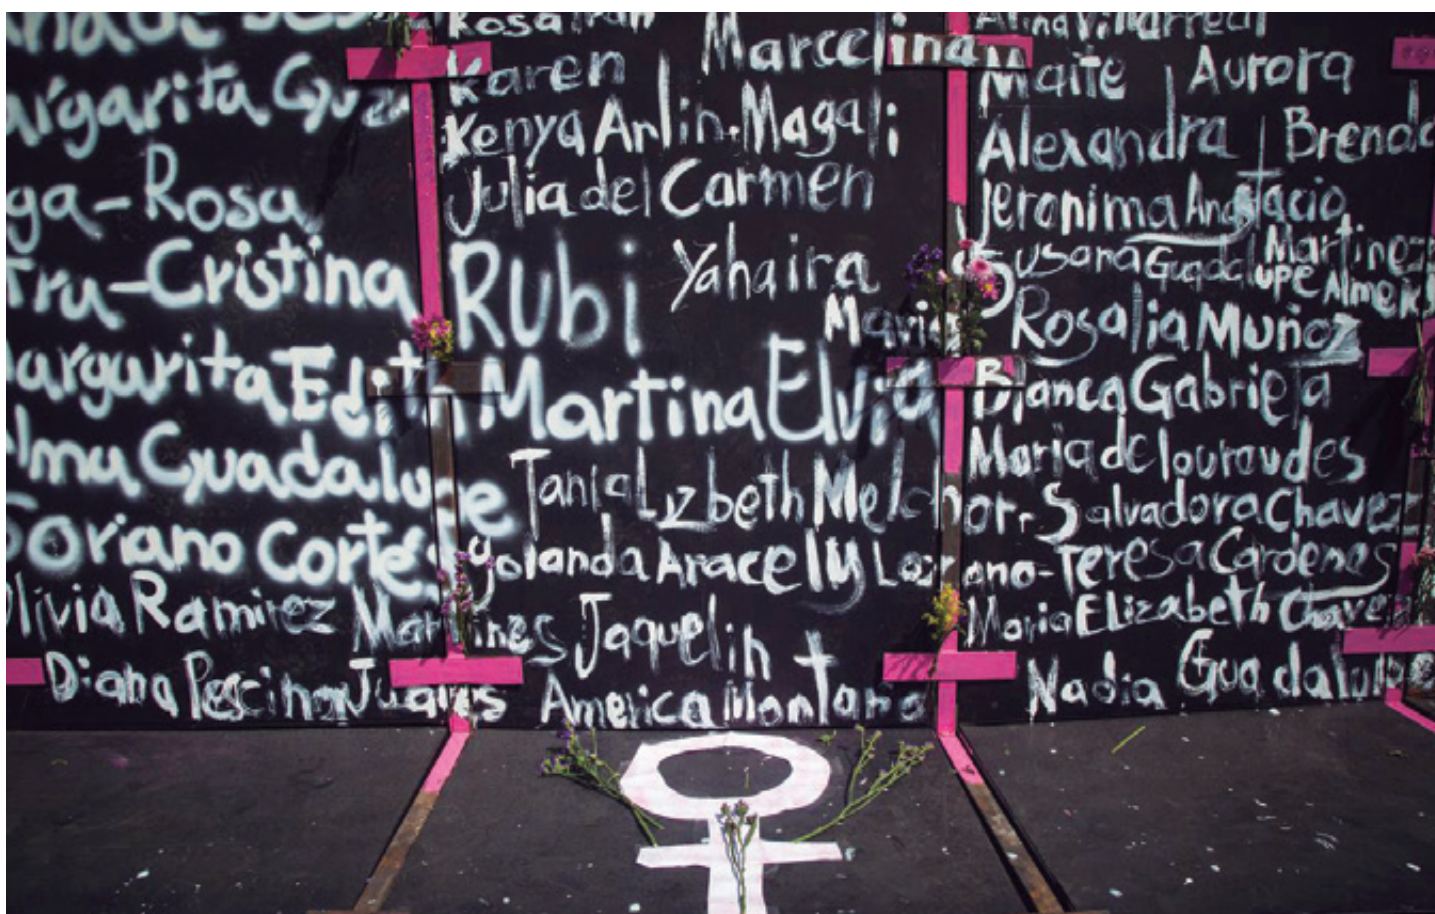 Margarita
-Rosa
-Cristina
Margarita Edith
Guadalupe
Soriano Cortés
Olivia Ramirez Martines
Diana Juares
Rosa
Karen Marcelina
Kenya Arlin. Magali
Julia del Carmen
Rubi Yahaira
Maria
Martina Elvia
Tania Lizbeth Melchor.
Yolanda Aracely Lozano-
Jaquelin
America Montano
Alina Villarreal
Maite Aurora
Alexandra Brenda
Jeronima Anastacio
Susana Guadalupe Martinez
Rosalia Muñoz
Blanca Gabriela
Maria de louraudes
Salvadora Chavez
Teresa Cardenes
Maria Elizabeth Chavez
Nadia Guadalupe